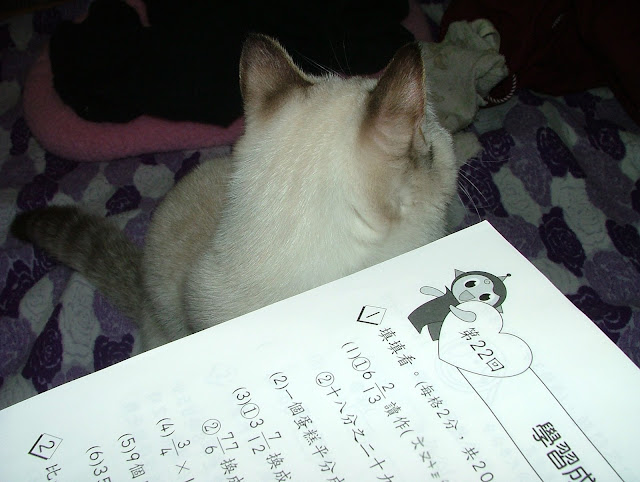 學習成
第22回
1 填填看。(每格2分，共20
(1)①6 2/13 讀作(
②十八分之二十九
(2)一個蛋糕平分成
(3)①3 7/12 換成
②77/6 換成
(4)3/4×1
(5)9個
(6)3
2 比